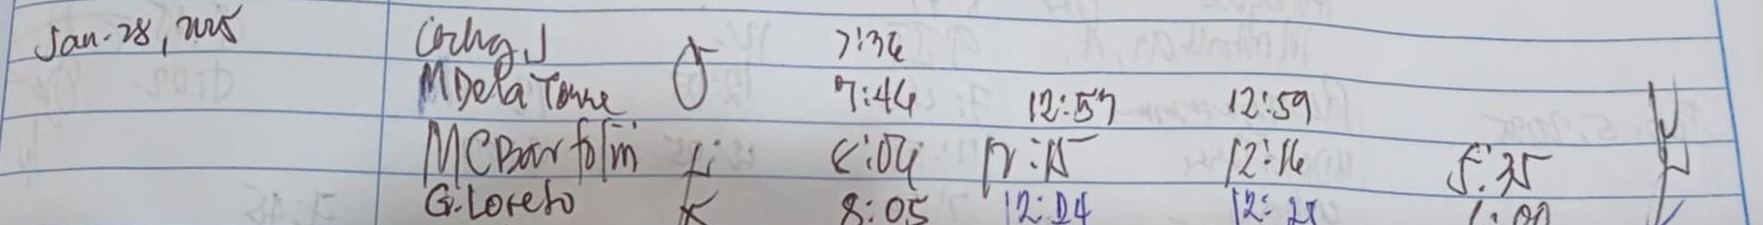 Jan. 28, 2025 7:36
M Dela Torre 7:44 12:57 12:59
MC Bartolin 8:04 12:15 12:16 5:35
G. Loreto 8:05 12:24